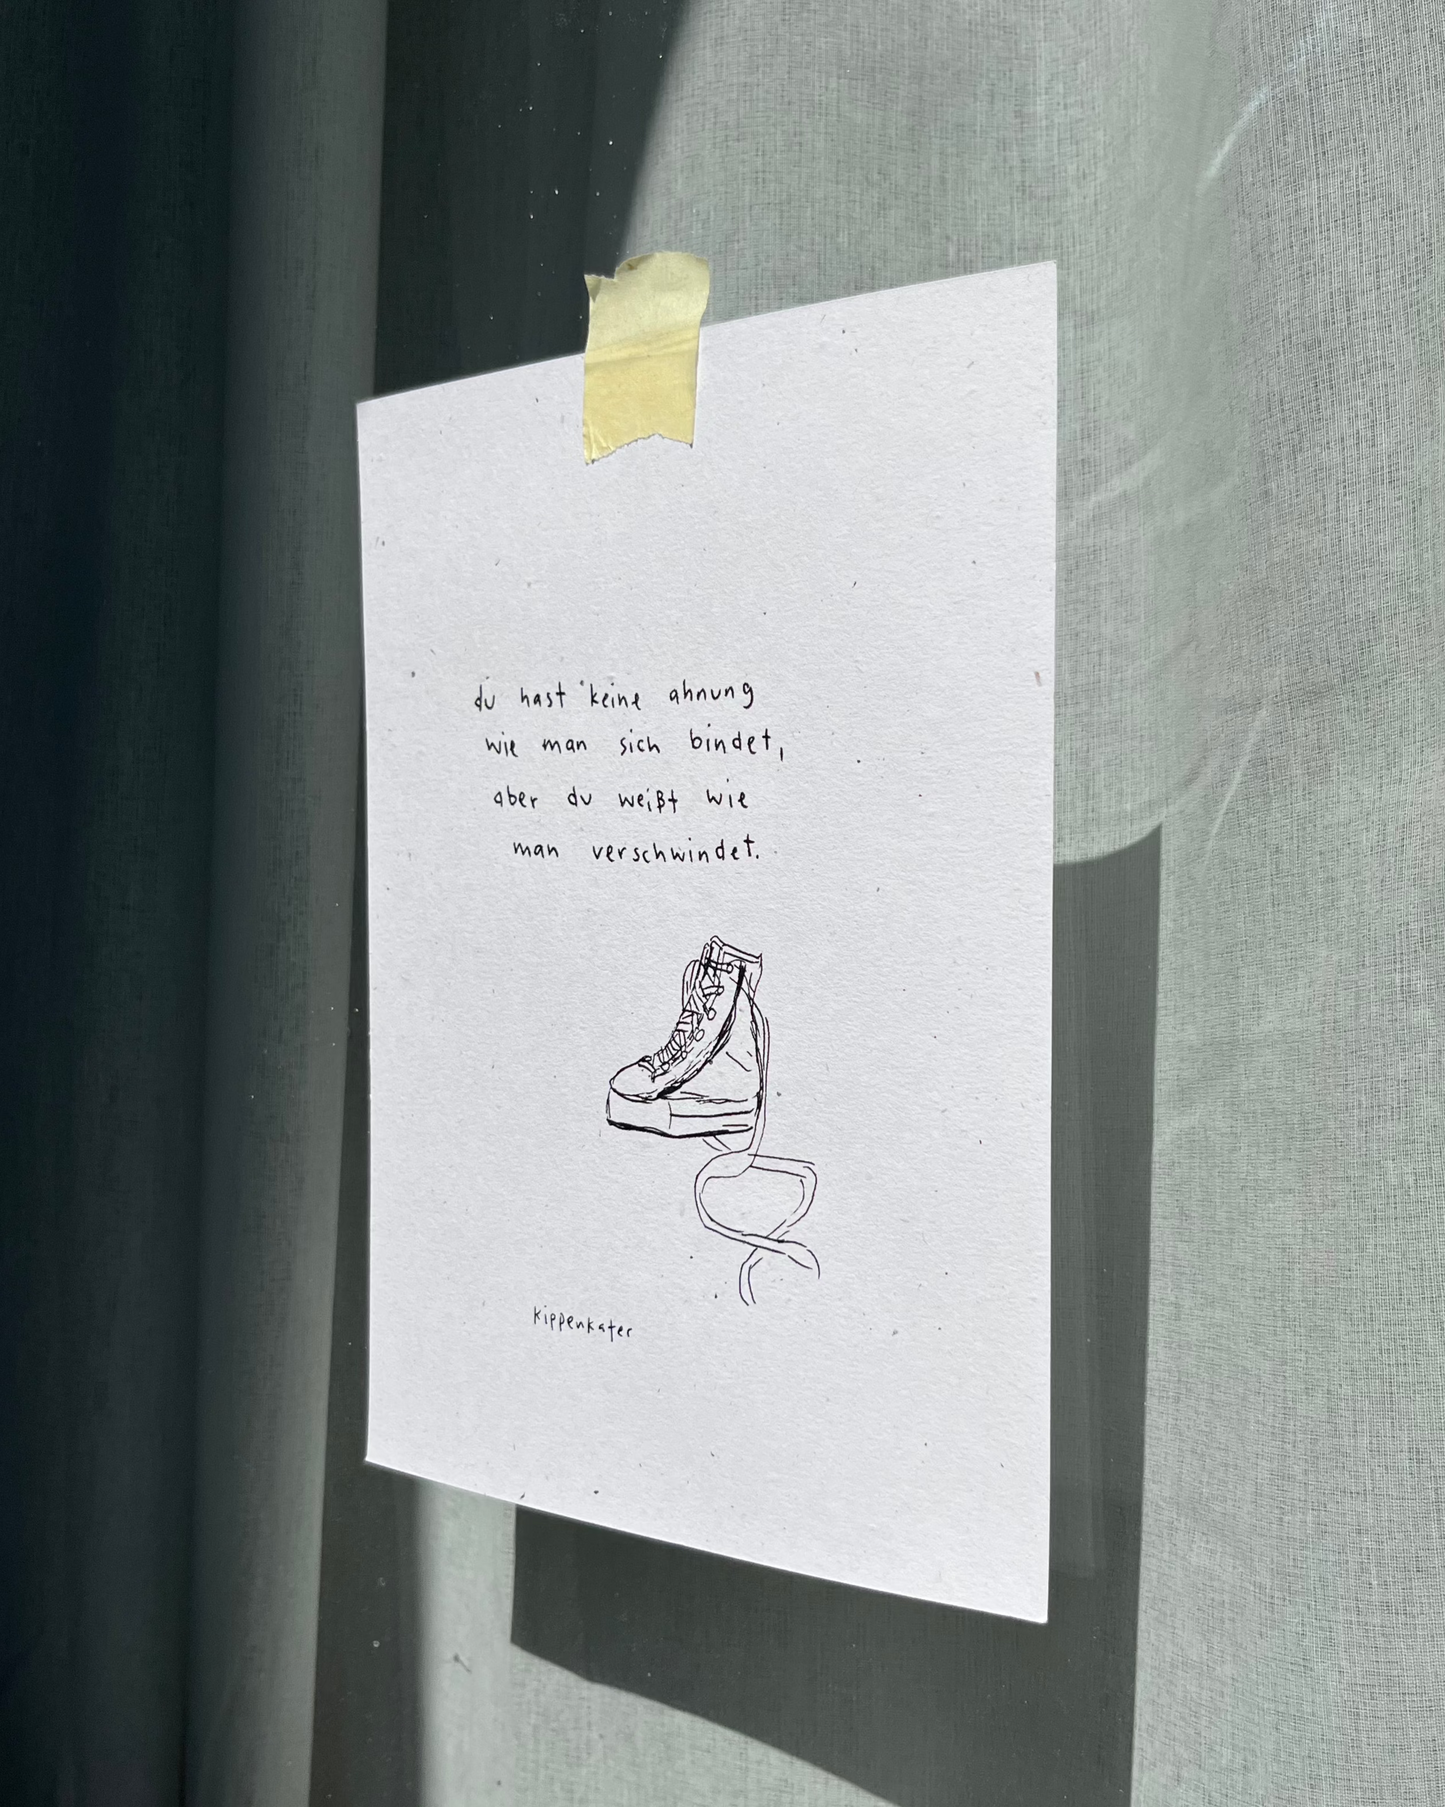 du hast keine ahnung
wie man sich bindet,
aber du weißt wie
man verschwindet.
kippenkater